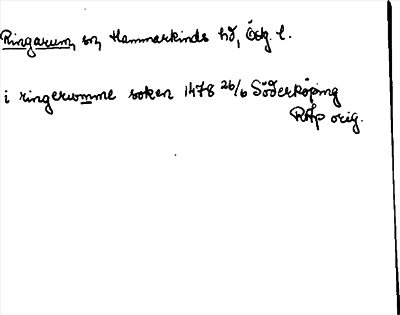 Ringarum, sn, Hammarkinds hd, Ög. l.
i ringerwmme soken 1478 26/6 Söderköping
RAp orig.